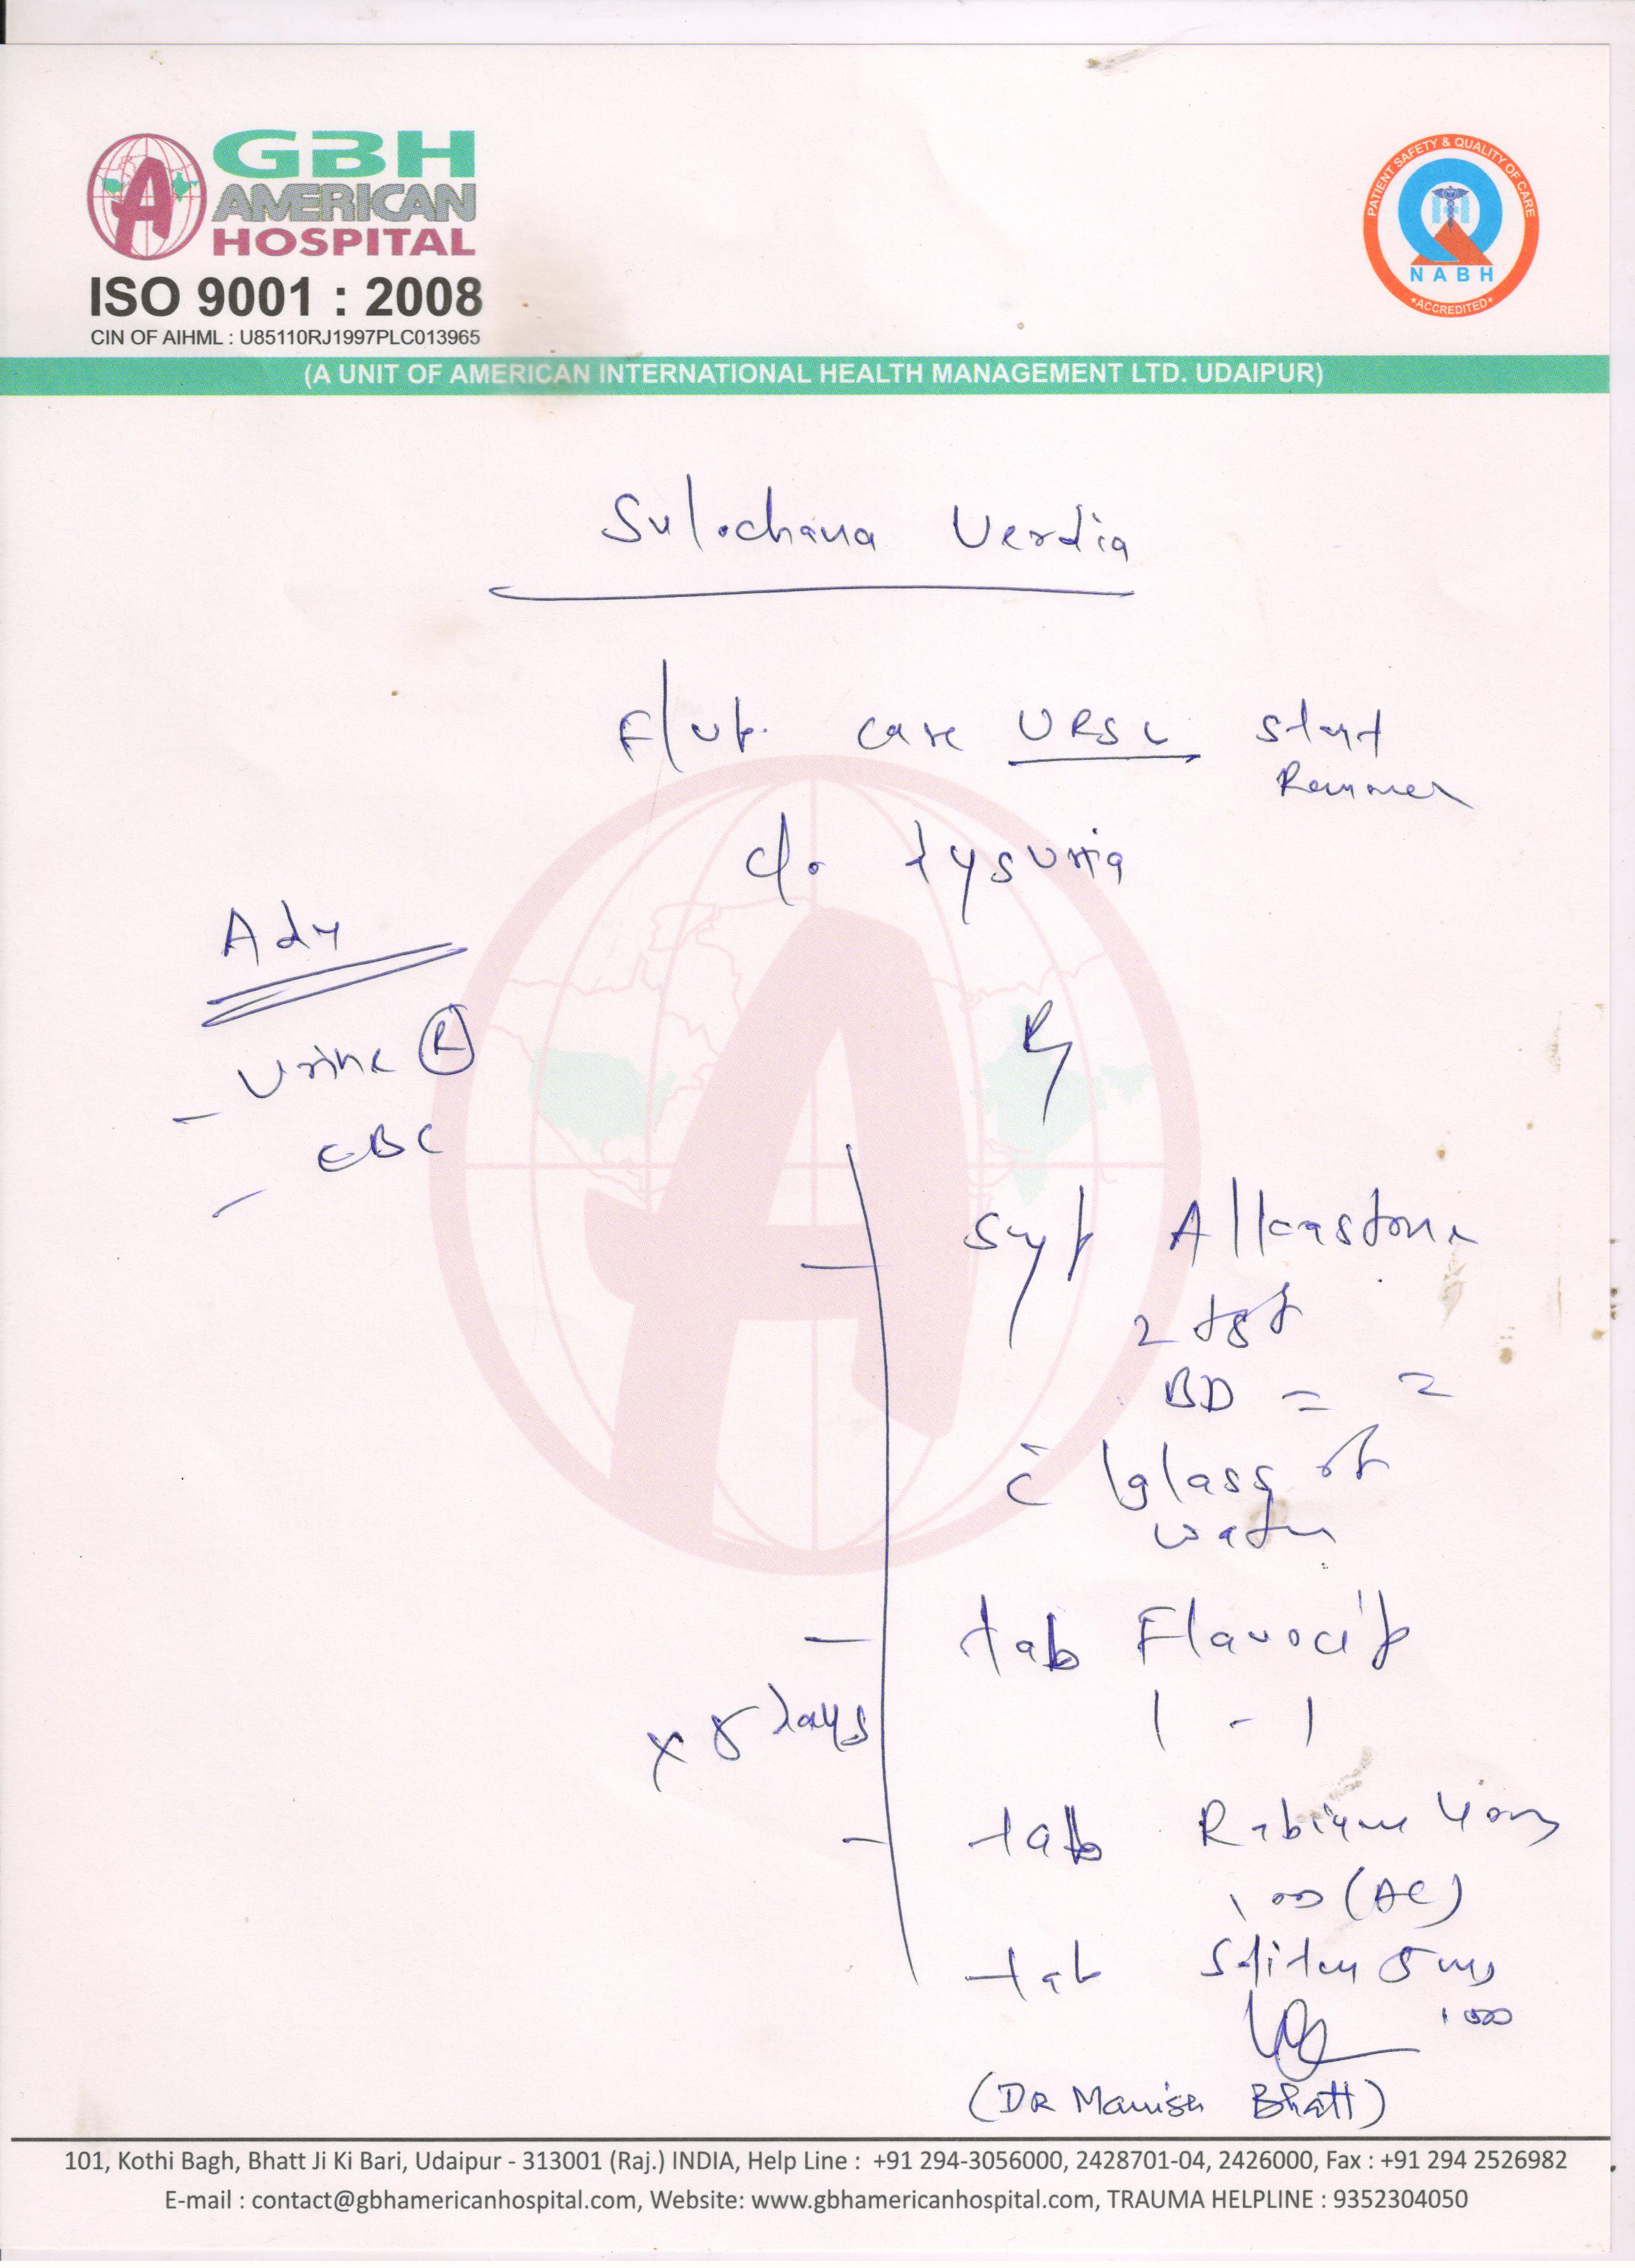 GBH
AMERICAN
HOSPITAL
ISO 9001 : 2008
CIN OF AIHML : U85110RJ1997PLC013965
PATIENT SAFETY & QUALITY OF CARE
NABH
*ACCREDITED*
(A UNIT OF AMERICAN INTERNATIONAL HEALTH MANAGEMENT LTD. UDAIPUR)
Sulochana Verdia
F/up. case URSL
c/o dysuria
Adv
- Urine (R)
- CBC
Rx
- Syp Alkastone
2 tsf
BD = 2
c̄ 1 glass of
water
- tab Flavocip
1 - 1
x 5 days
- tab 40mg
1 OD (AC)
tab 5 mg
1 OD
(DR Manish Bhatt)
101, Kothi Bagh, Bhatt Ji Ki Bari, Udaipur - 313001 (Raj.) INDIA, Help Line : +91 294-3056000, 2428701-04, 2426000, Fax : +91 294 2526982
E-mail : contact@gbhamericanhospital.com, Website: www.gbhamericanhospital.com, TRAUMA HELPLINE : 9352304050